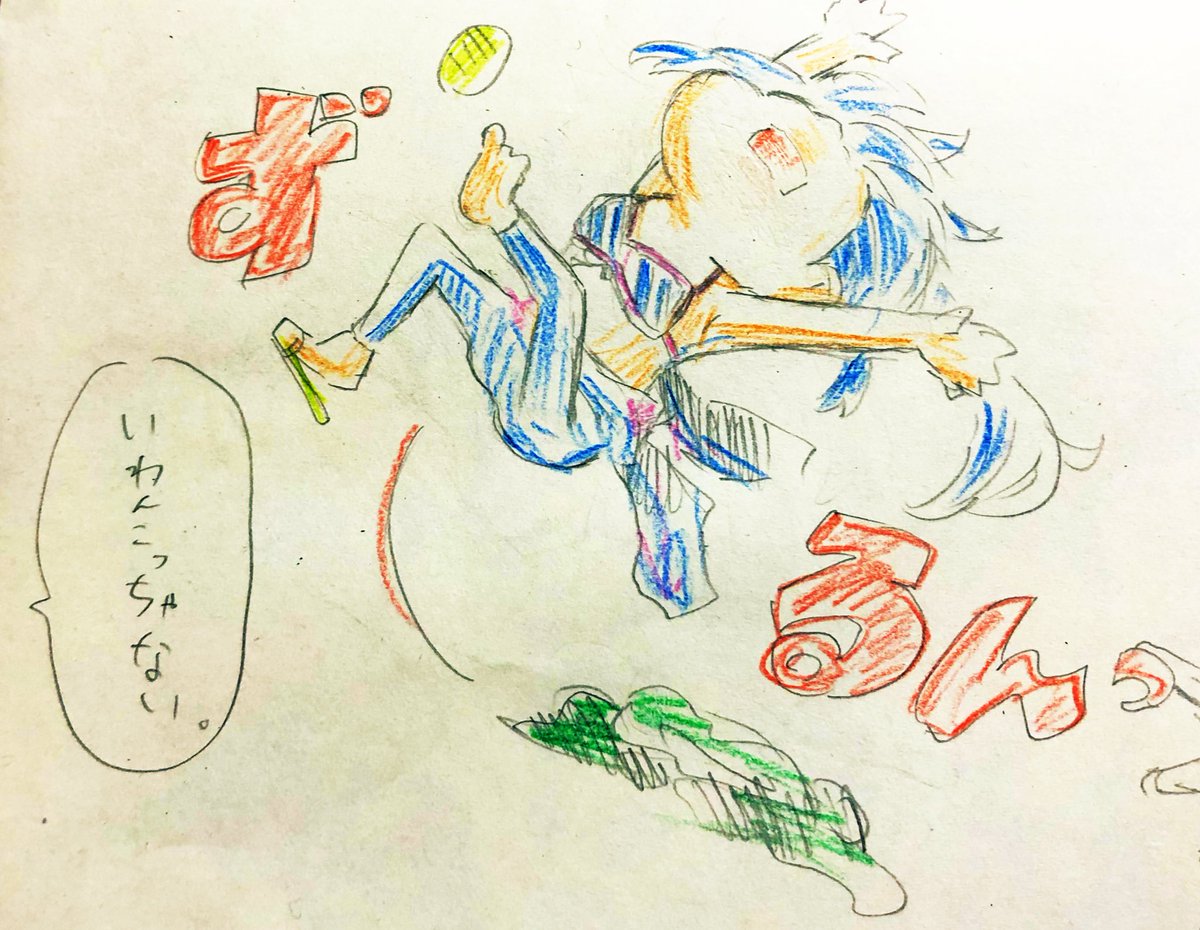 ずるんっ
いわんこっちゃない。